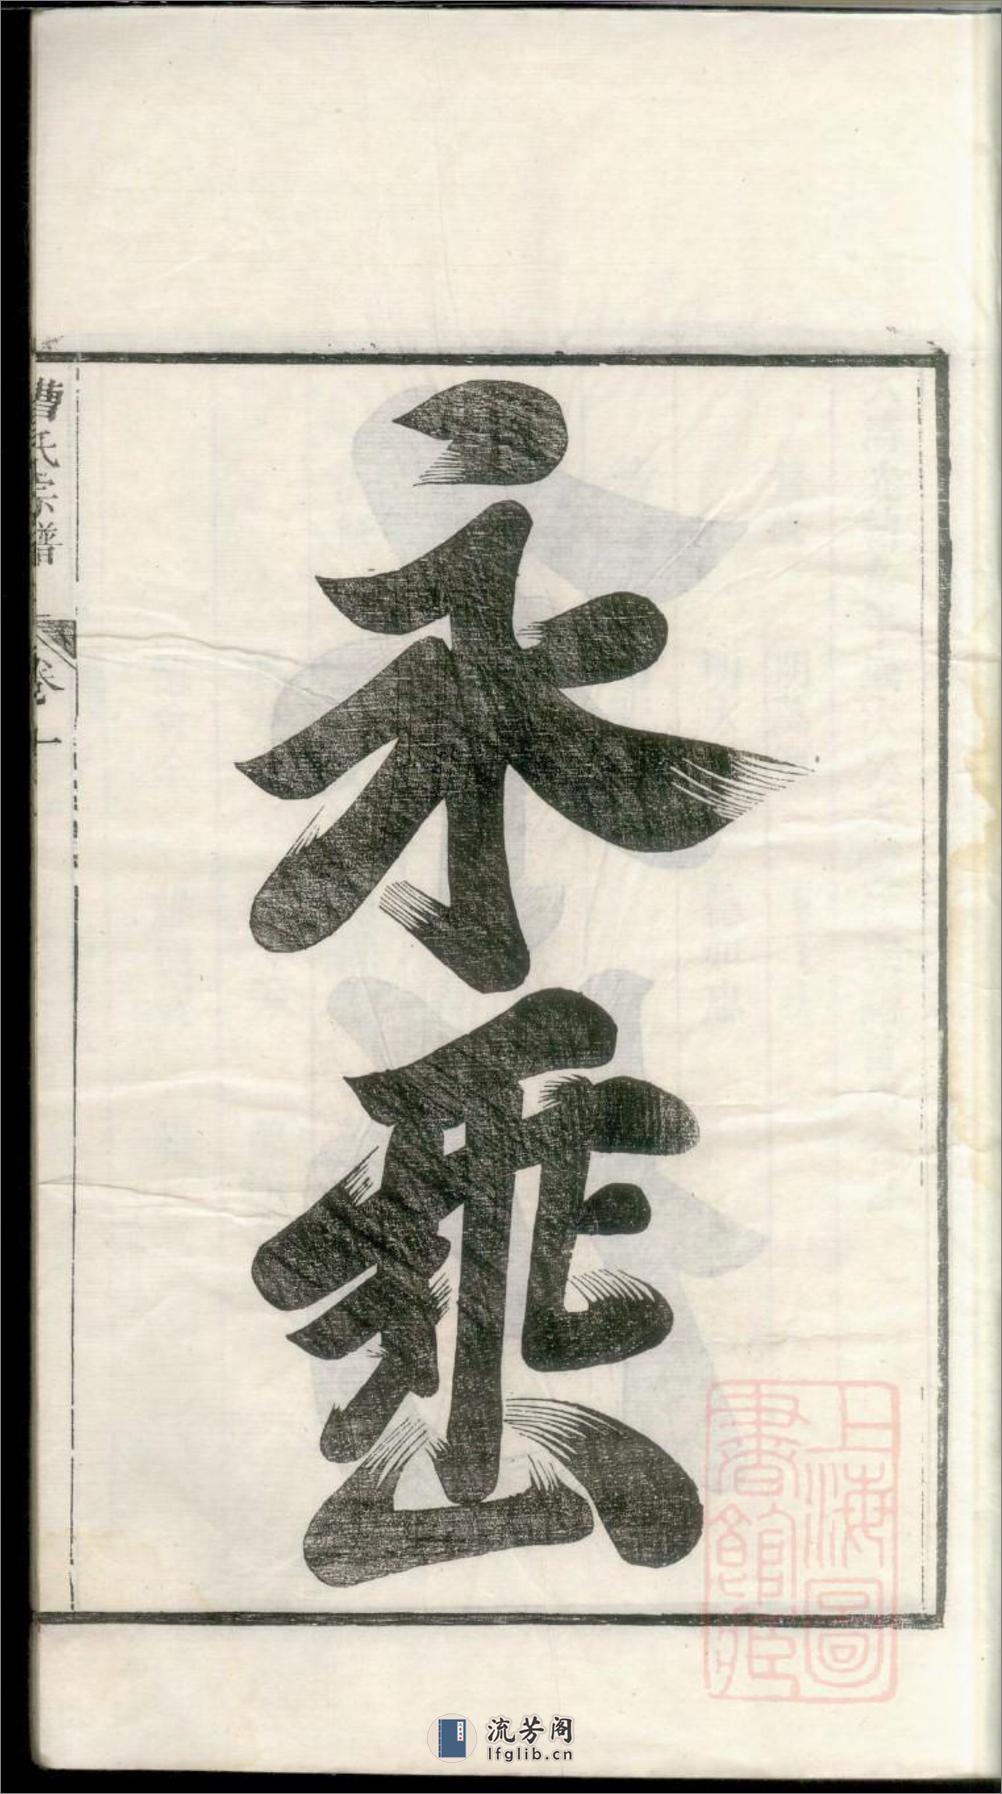 永垂
曹氏宗譜
卷一
上海圖
書館藏
流芳阁
lfglib.cn